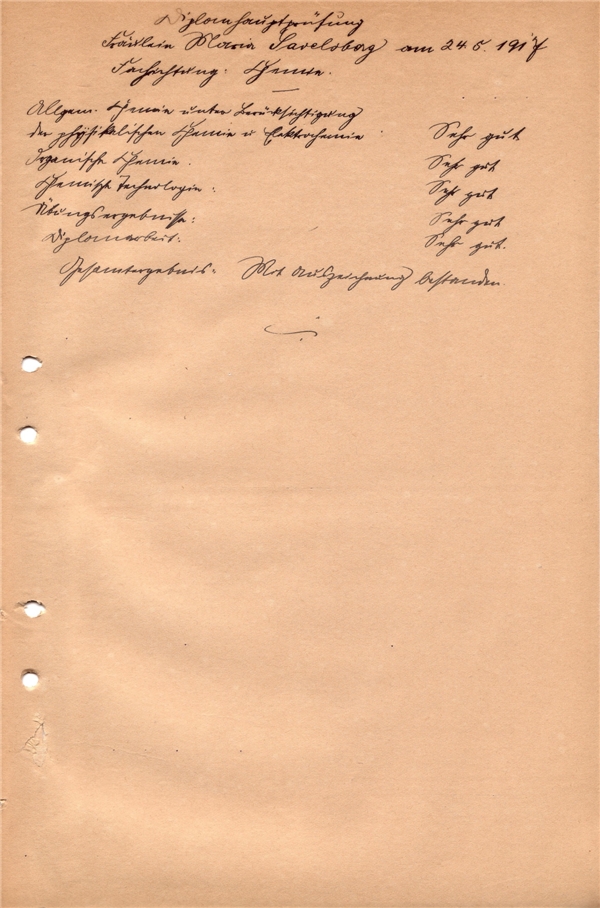 Diplomhauptprüfung
Fräulein Maria Savelsberg am 24.5.1917
Fachrichtung: Chemie.
Allgem. Chemie unter Berücksichtigung
der physikalischen Chemie u Elektrochemie: Sehr gut
Organische Chemie. Sehr gut
Chemische Technologie: Sehr gut
Übungsergebnisse: Sehr gut
Diplomarbeit: Sehr gut.
Gesamtergebnis: Mit Auszeichnung bestanden.